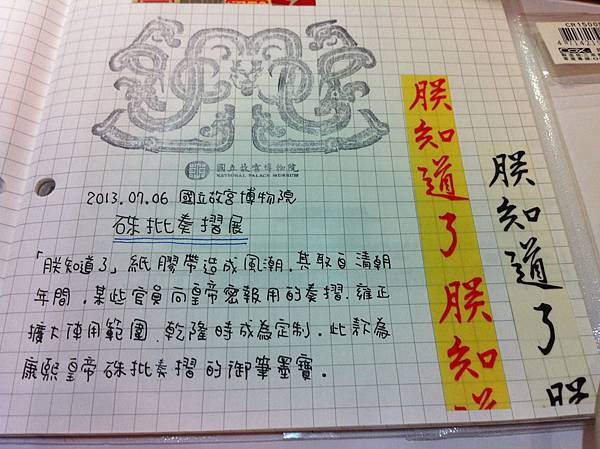 國立故宮博物院
NATIONAL PALACE MUSEUM
2013.07.06 國立故宮博物院
硃批奏摺展
「朕知道了」紙膠帶造成風潮.其取自清朝
年間.某些官員向皇帝密報用的奏摺.雍正
擴大使用範圍.乾隆時成為定制.此款為
康熙皇帝硃批奏摺的御筆墨寶。
朕知道了朕知道
朕知道了朕